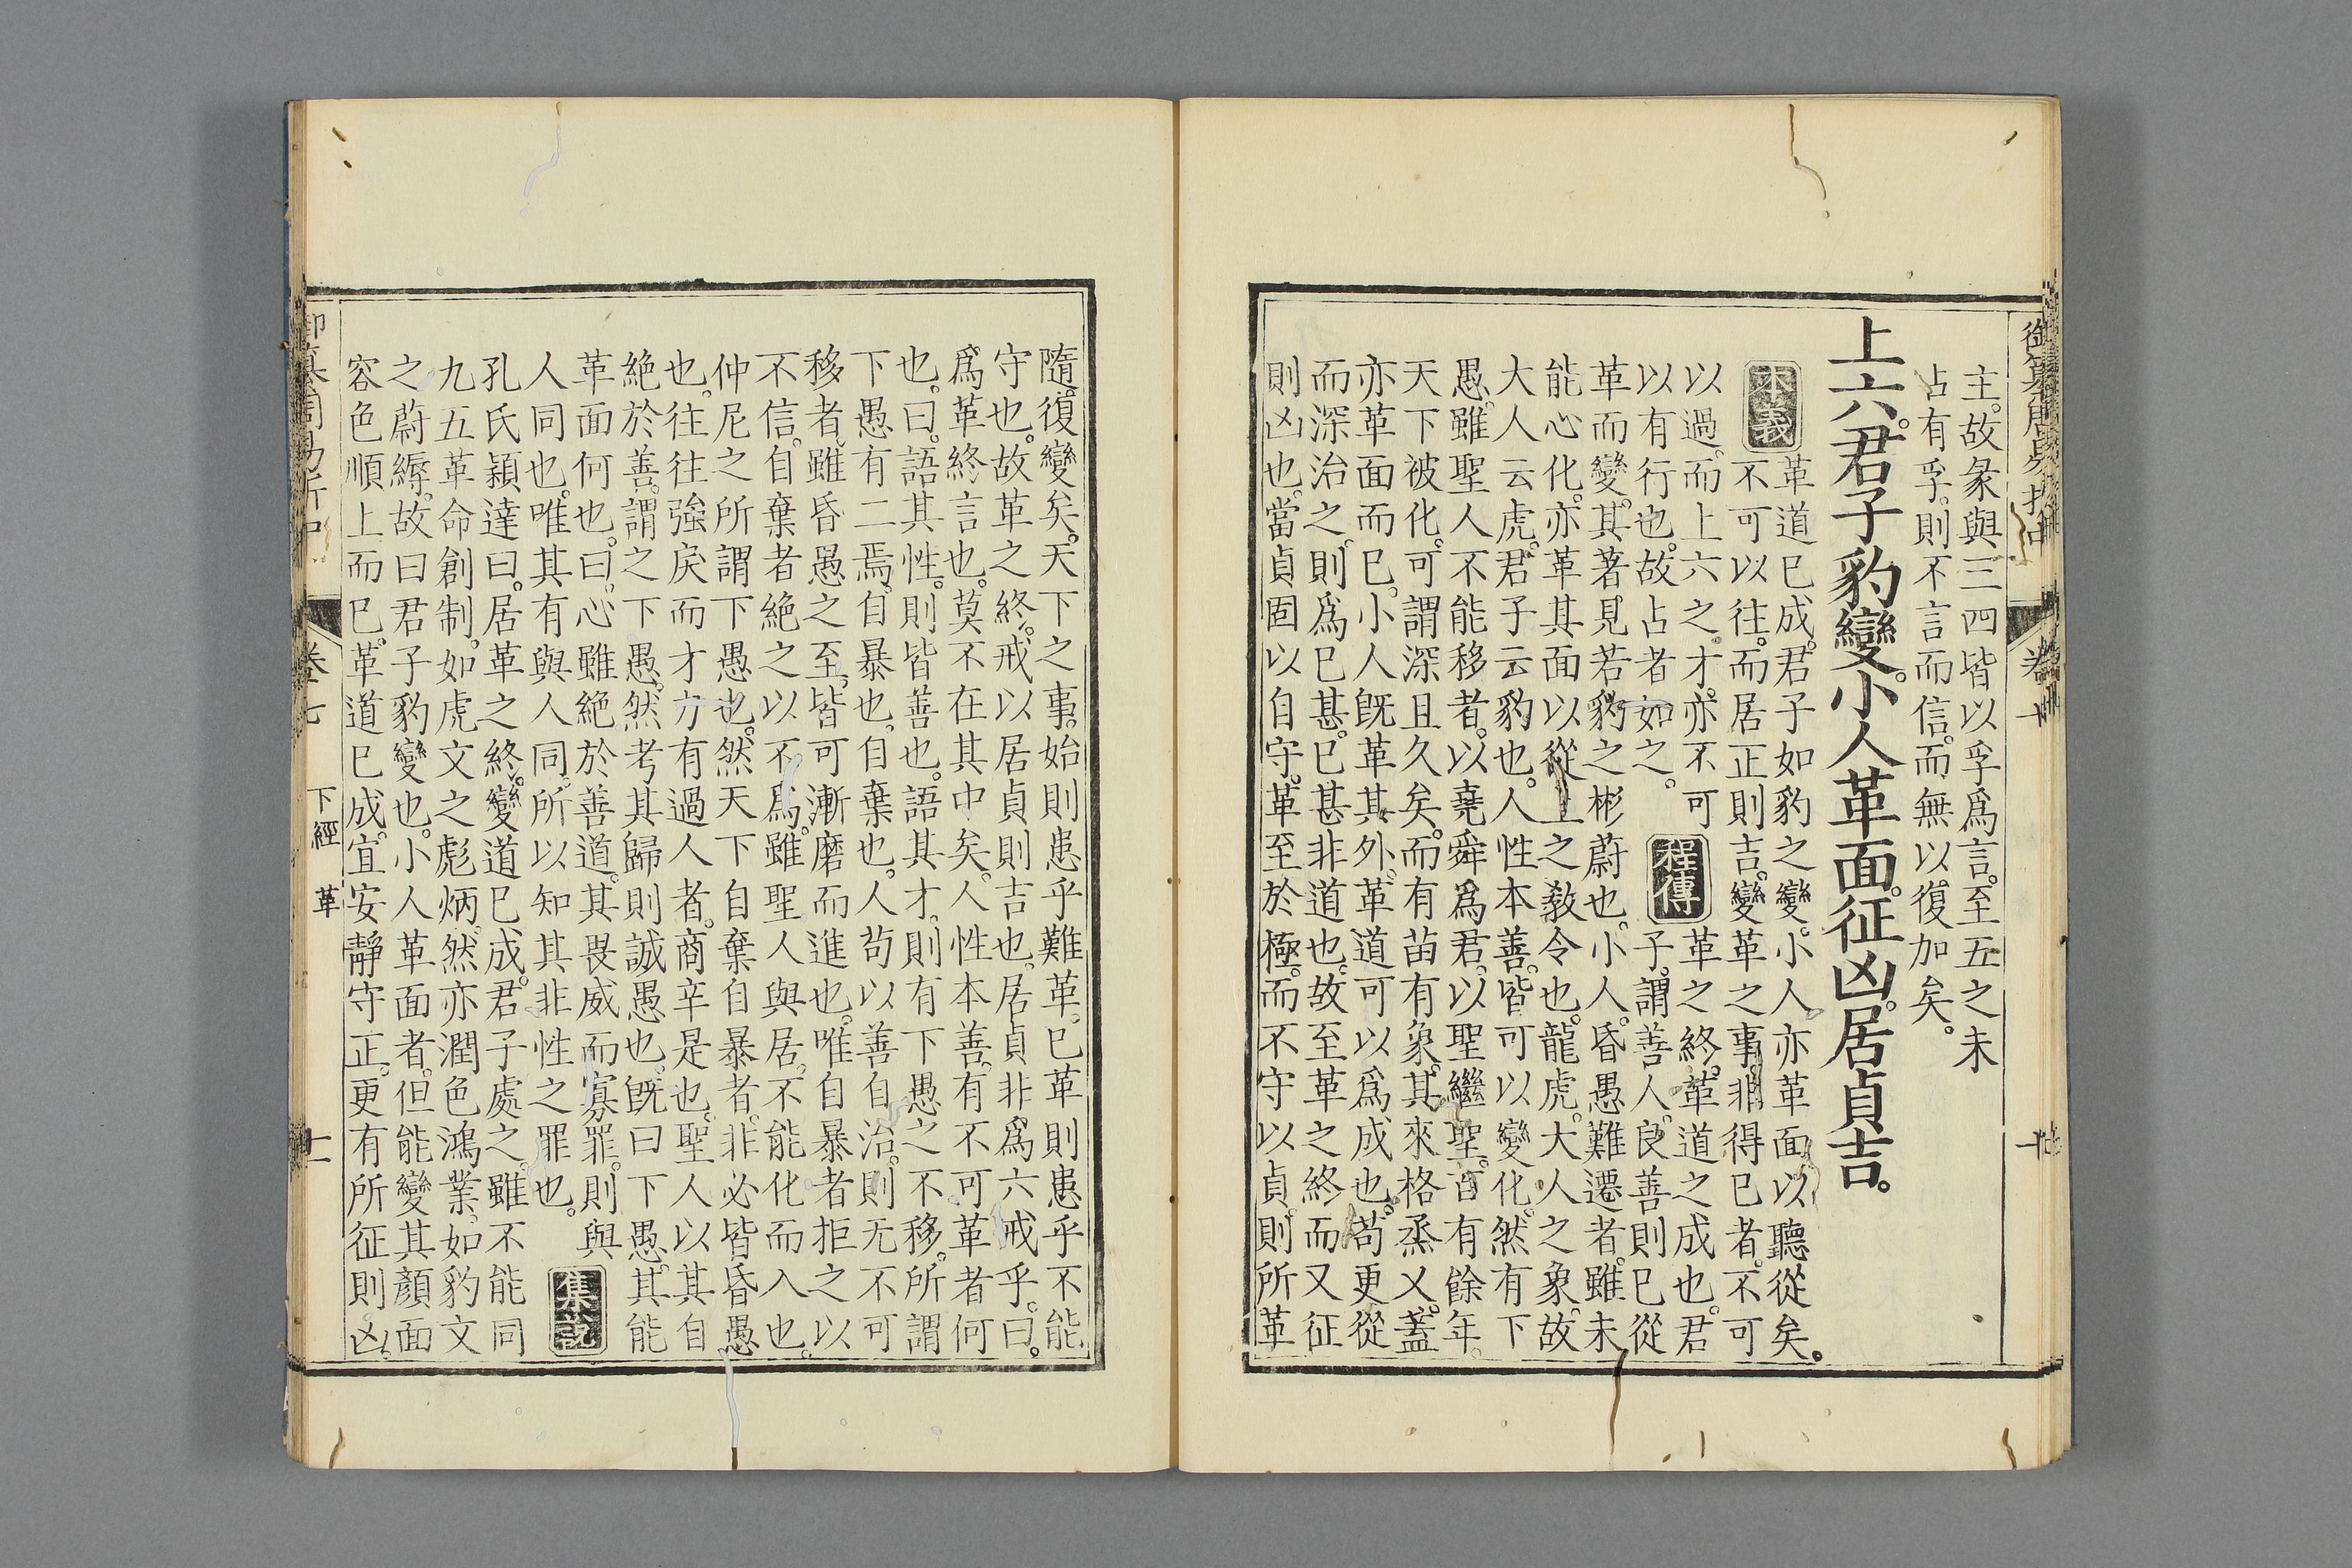 主。故彖與三四皆以孚爲言。至五之未
占有孚。則不言而信。而無以復加矣。
上六。君子豹變。小人革面。征凶。居貞吉。
本義
革道已成。君子如豹之變。小人亦革面以聽從矣。
不可以往。而居正則吉。變革之事。非得已者。不可
以過。而上六之才。亦不可
以有行也。故占者如之。
程傳
革之終。革道之成也。君
子。謂善人。良善則已從
革而變。其著見若豹之彬蔚也。小人。昏愚難遷者。雖未
能心化。亦革其面以從上之敎令也。龍虎。大人之象。故
大人云虎。君子云豹也。人性本善。皆可以變化。然有下
愚。雖聖人不能移者。以堯舜爲君。以聖繼聖。百有餘年。
天下被化。可謂深且久矣。而有苗有象。其來格烝乂。蓋
亦革面而已。小人旣革其外。革道可以爲成也。苟更從
而深治之。則爲已甚。已甚非道也。故至革之終而又征
則凶也。當貞固以自守。革至於極。而不守以貞。則所革
隨復變矣。天下之事。始則患乎難革。已革則患乎不能
守也。故革之終。戒以居貞則吉也。居貞非爲六戒乎。曰。
爲革終言也。莫不在其中矣。人性本善。有不可革者何
也。曰。語其性。則皆善也。語其才。則有下愚之不移。所謂
下愚有二焉。自暴也。自棄也。人苟以善自治。則无不可
移者。雖昏愚之至。皆可漸磨而進也。唯自暴者拒之以
不信。自棄者絶之以不爲。雖聖人與居。不能化而入也。
仲尼之所謂下愚也。然天下自棄自暴者。非必皆昏愚
也。往往強戾而才力有過人者。商辛是也。聖人以其自
絶於善。謂之下愚。然考其歸則誠愚也。旣曰下愚。其能
革面何也。曰。心雖絶於善道。其畏威而寡罪。則與
人同也。唯其有與人同。所以知其非性之罪也。
集說
孔氏穎達曰。居革之終。變道已成。君子處之。雖不能同
九五革命創制。如虎文之彪炳。然亦潤色鴻業。如豹文
之蔚縟。故曰君子豹變也。小人革面者。但能變其顏面
容色順上而已。革道已成。宜安靜守正。更有所征則凶。
卷七
下經
革